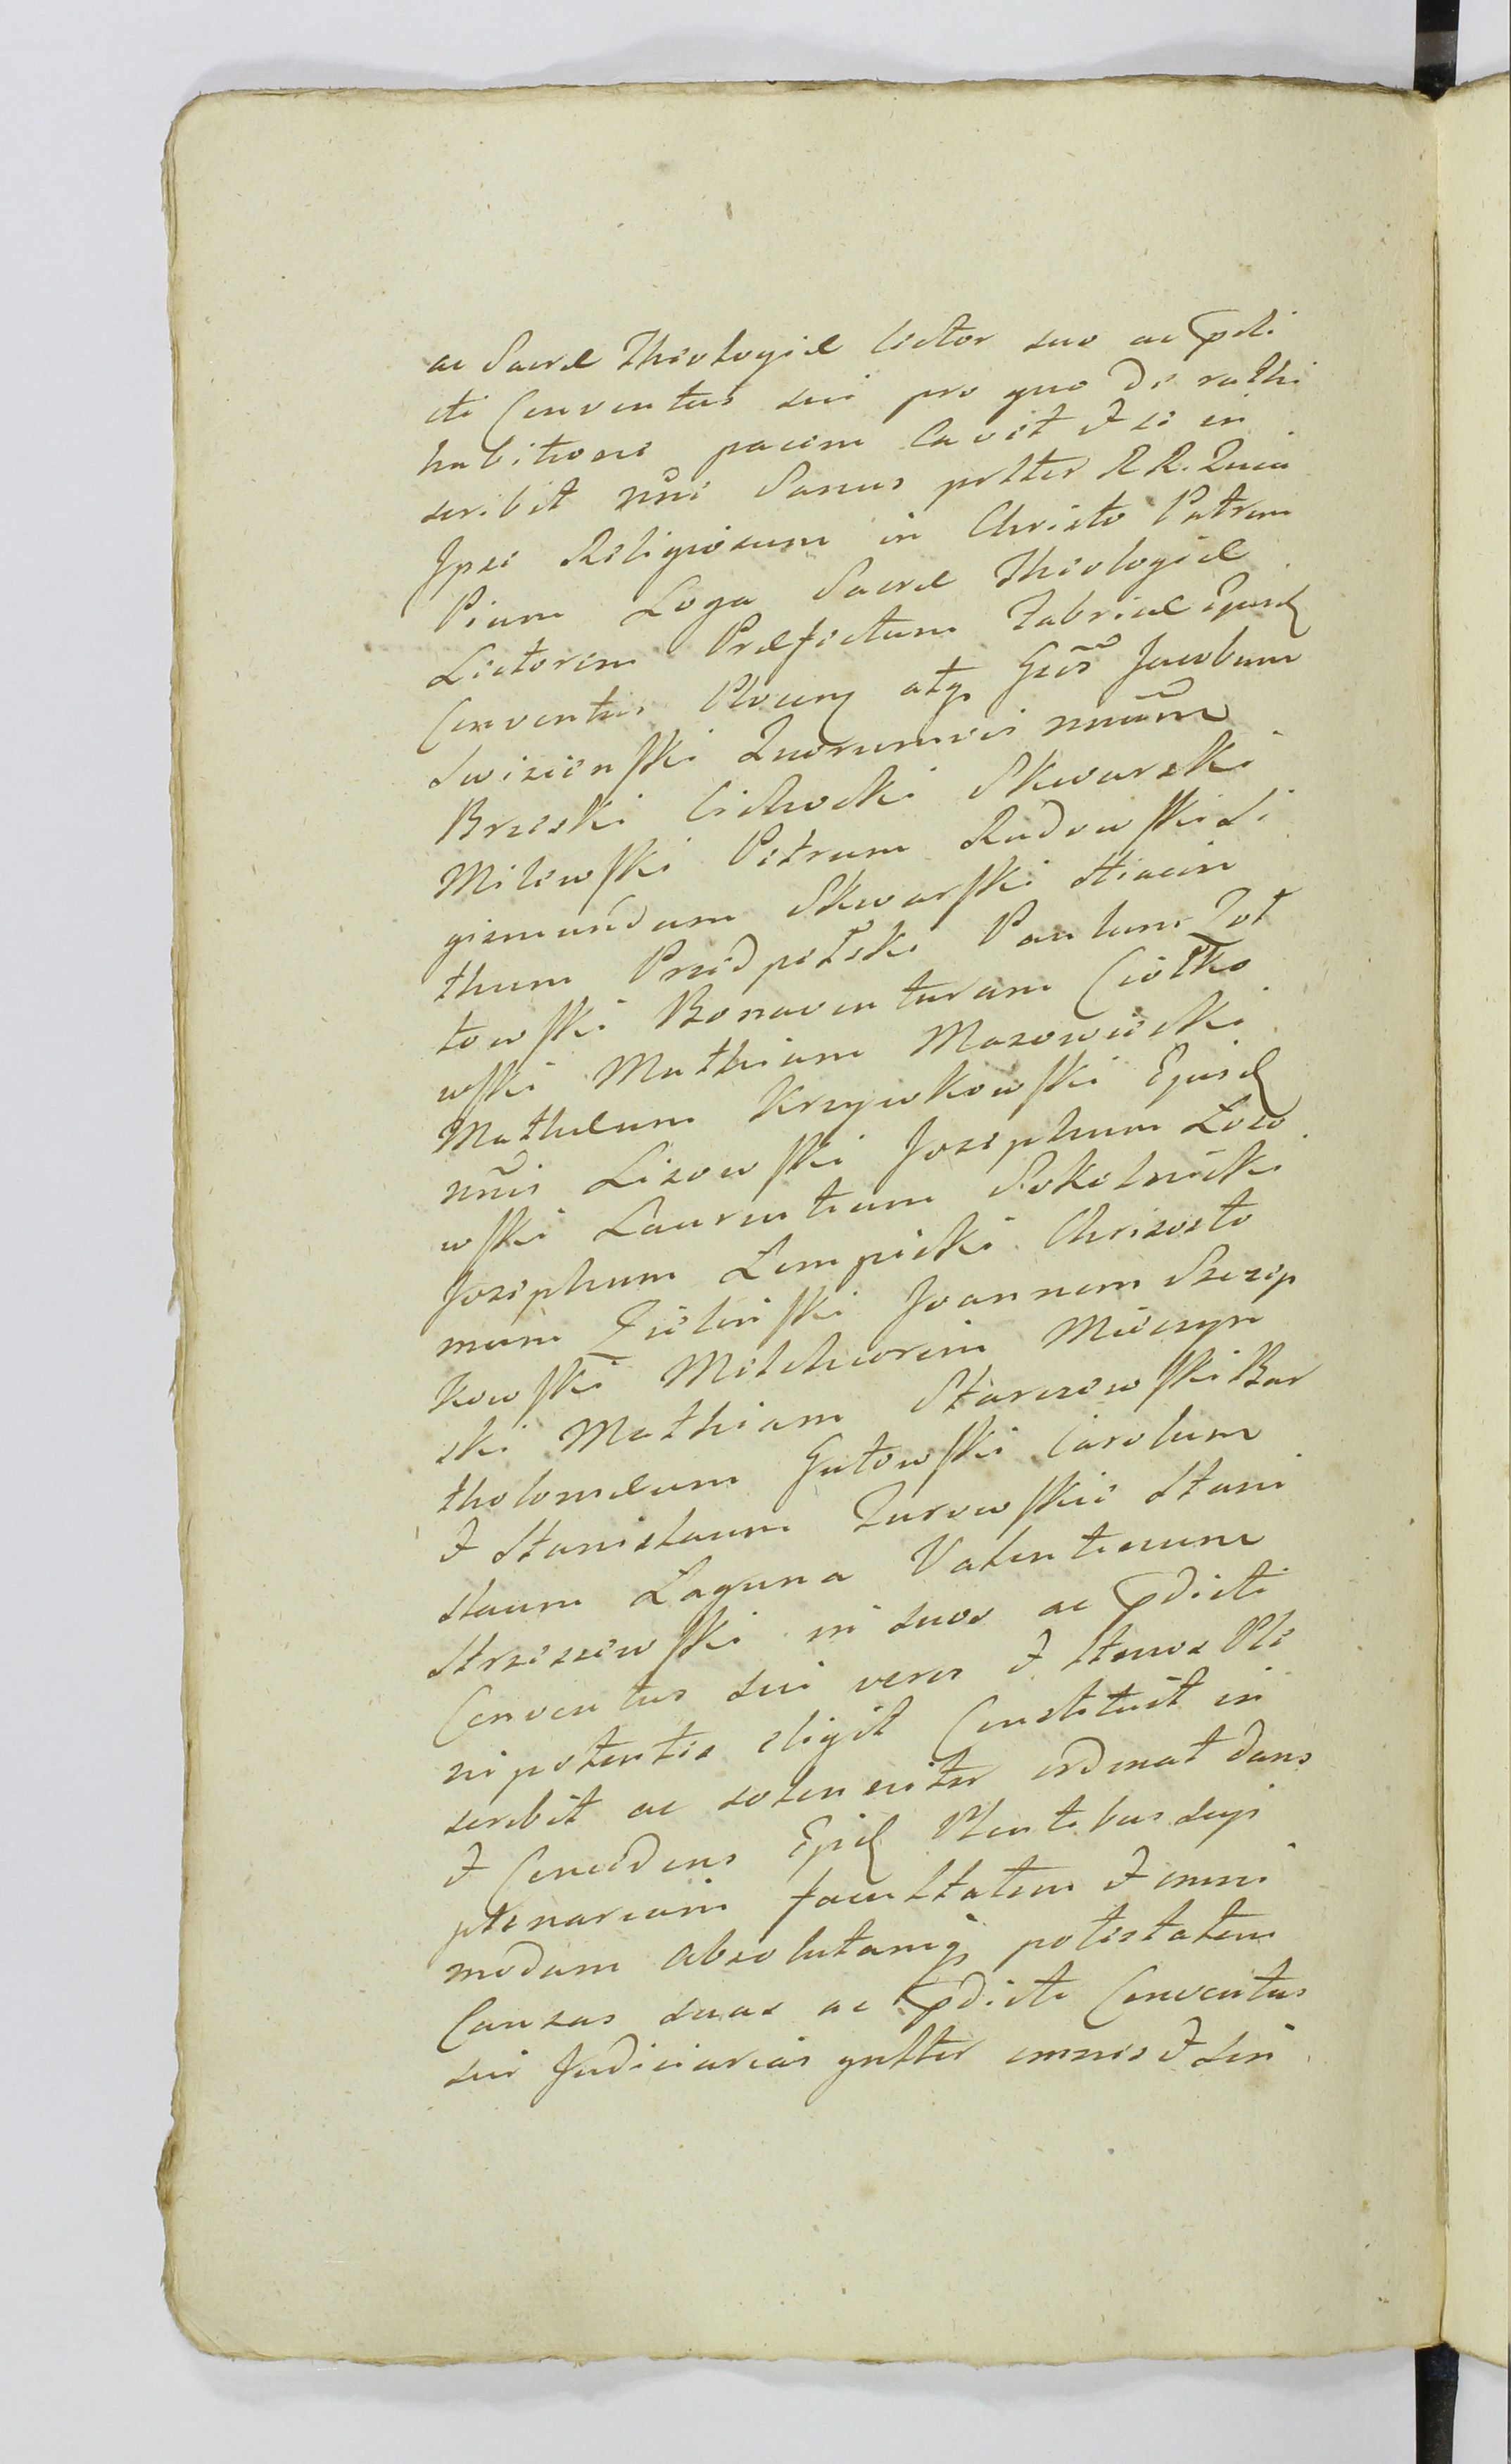 ac Sacræ Theologiæ Lector suo ac pdi
cti Conventus sui pro quo de rathi
habitione pacem cavet & se in
scribit nũc Sanus pnlter RR. Quia
Ipse Religiosum in Christo Patrem
Pium Loga Sacræ Theologiæ
Lectorem Præfectum Fabricæ Ejusd
Conventus Plocen atq Gẽos Jacobum
Swizienski Quorumvis nnũm
Brzeski Cichocki Skwarski
Milewski Petrum Radowski Si
gismundum Skwarski Hiacin
thum Przedpełski Paulum Zoł
towski Bonaventuram Ciołko
wski Mathiam Mazowiecki
Mathæum Krzywkowski Ejusd
nñis Lisowski Josephum Lozo
wski Laurentium Sokolnicki
Josephum Lempicki Chrisosto
mum Zieliński Joannem Szczep
kowski Melchiorem Mieczyn
ski Mathiam Starczewski Bar
tholomæum Gutowski Carolum
& Stanislaum Zurowskie Stani
slaum Laguna Valentinum
Strzeszewski in suos ac pdicti
Conventus sui veros & ltmos Ple
nipotentes eligit Constituit in
scribit ac solenniter ordinat dans
& Concedens Ejusd Plentibus suis
plenariam facultatem & omni
modam absolutamq potestatem
Causas suas ac pdicti Conventus
sui Judiciarias gnlter omnes & sin